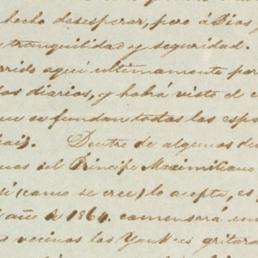 hecho desesperar, pero a Dios
y tranquilidad y seguridad.
rrido aquí ultimamente por
os diarios, y habrá visto el
se fundan todas las esp
Dentro de algunos d
del Príncipe Maximiliano
si (como se cree) lo acepta, es
año de 1864. comensará
vecinos los Yankees gritara